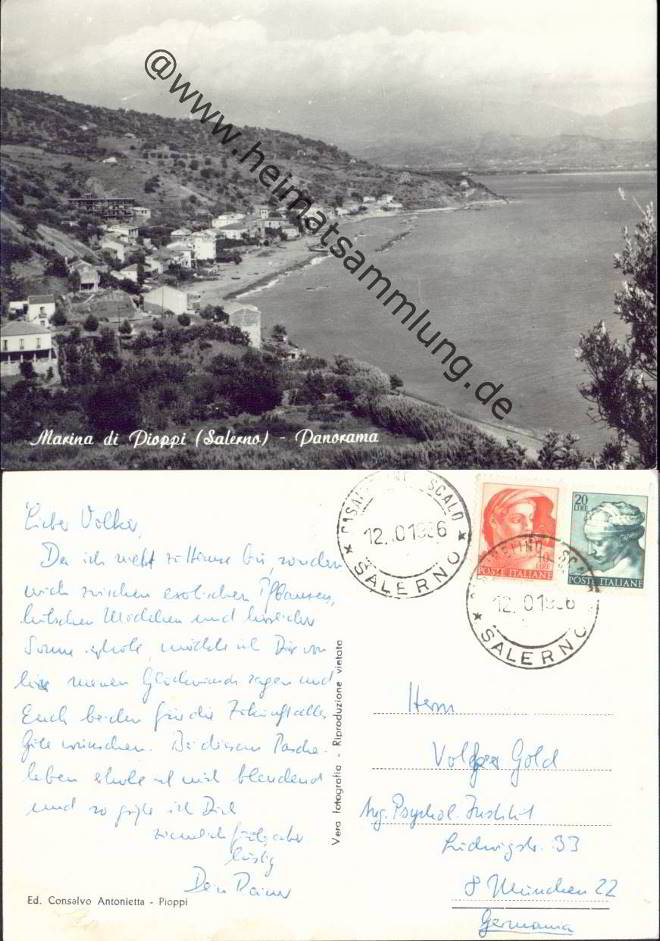 @www.heimatsammlung.de
Marina di Pioppi (Salerno) - Panorama
Lieber Volker,
Da ich nicht zu Hause bin, sondern
mich zwischen exotischen Pflanzen,
hübschen Mädchen und herrlicher
Sonne erhole, möchte ich Dir von
hier meinen Glückwunsch sagen und
Euch beiden für die Zukunft alles
Gute wünschen. Bei diesem Pascha-
leben erhole ich mich blendend
und so grüße ich Dich
ziemlich faul, aber
lustig
Dein Rainer
Ed. Consalvo Antonietta - Pioppi
Vera fotografia - Riproduzione vietata
SCALO
12. 01966
★ SALERNO ★
POSTE ITALIANE
20
LIRE
POSTE ITALIANE
12. 0196
★ SALERNO
Herrn
Volker Gold
Psychol. Institut
Ludwigstr. 33
8 München 22
Germania